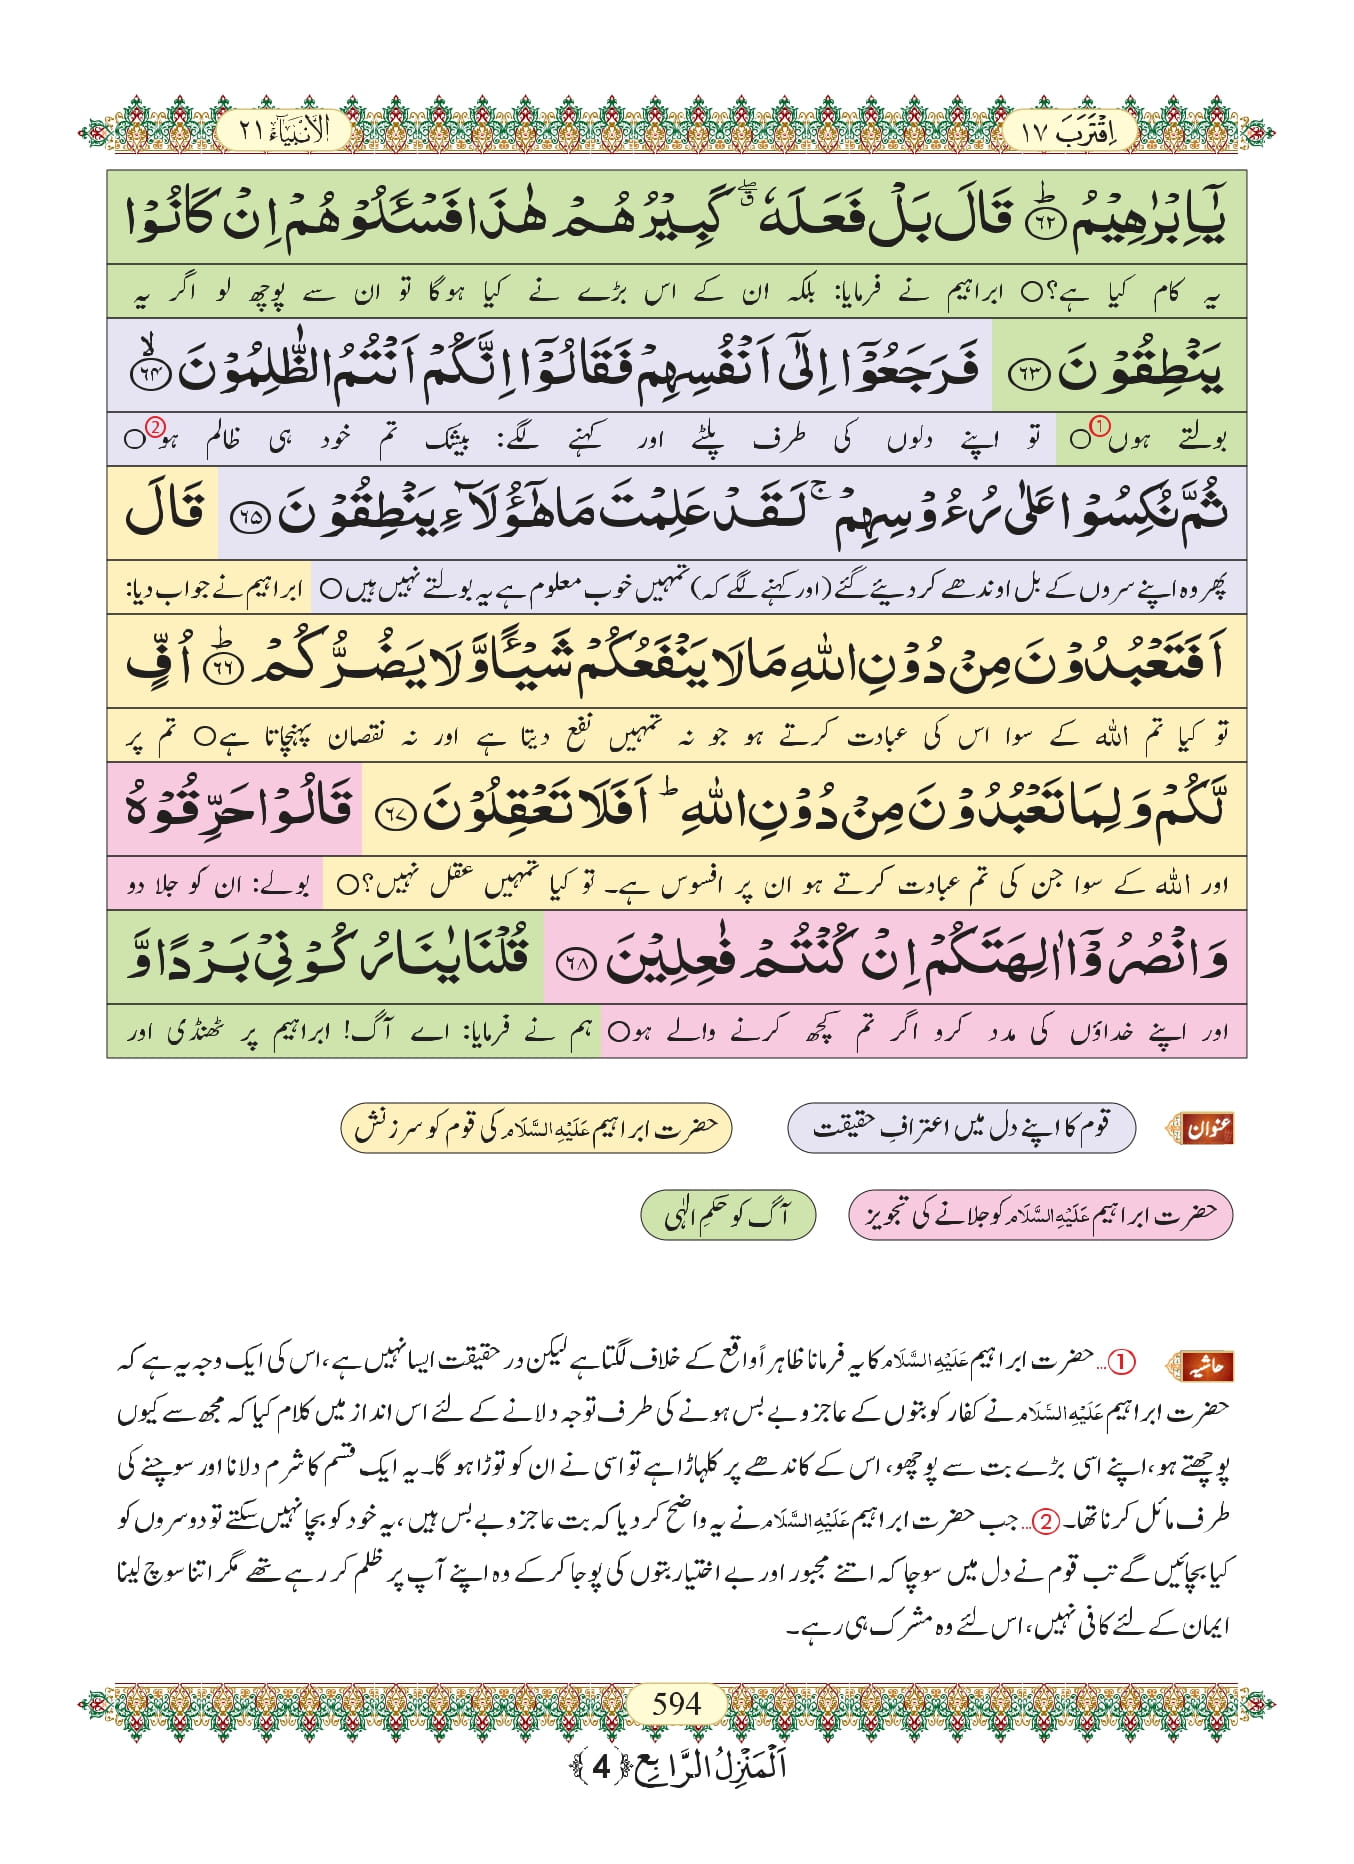 اِقْتَرَبَ ١٧
الْاَنْبِيَآء ٢١
يٰۤاِبْرٰهِيْمُ ؕ﴿٦٢﴾ قَالَ بَلْ فَعَلَهٗ ۖۗ كَبِيْرُهُمْ هٰذَا فَسْـَٔلُوْهُمْ اِنْ كَانُوْا
یہ کام کیا ہے؟○ ابراہیم نے فرمایا: بلکہ ان کے اس بڑے نے کیا ہوگا تو ان سے پوچھ لو اگر یہ
يَنْطِقُوْنَ ﴿٦٣﴾ فَرَجَعُوْۤا اِلٰۤى اَنْفُسِهِمْ فَقَالُوْۤا اِنَّكُمْ اَنْتُمُ الظّٰلِمُوْنَ ۙ﴿٦٤﴾
بولتے ہوں① ○ تو اپنے دلوں کی طرف پلٹے اور کہنے لگے: بیشک تم خود ہی ظالم ہو② ○
ثُمَّ نُكِسُوْا عَلٰى رُءُوْسِهِمْ ۚ لَقَدْ عَلِمْتَ مَا هٰۤؤُلَآءِ يَنْطِقُوْنَ ﴿٦٥﴾ قَالَ
پھر وہ اپنے سروں کے بل اوندھے کر دیئے گئے (اور کہنے لگے کہ) تمہیں خوب معلوم ہے یہ بولتے نہیں ہیں○ ابراہیم نے جواب دیا:
اَفَتَعْبُدُوْنَ مِنْ دُوْنِ اللّٰهِ مَا لَا يَنْفَعُكُمْ شَيْـًٔا وَّ لَا يَضُرُّكُمْ ؕ﴿٦٦﴾ اُفٍّ
تو کیا تم اللہ کے سوا اس کی عبادت کرتے ہو جو نہ تمہیں نفع دیتا ہے اور نہ نقصان پہنچاتا ہے○ تم پر
لَّكُمْ وَ لِمَا تَعْبُدُوْنَ مِنْ دُوْنِ اللّٰهِ ؕ اَفَلَا تَعْقِلُوْنَ ﴿٦٧﴾ قَالُوْا حَرِّقُوْهُ
اور اللہ کے سوا جن کی تم عبادت کرتے ہو ان پر افسوس ہے۔ تو کیا تمہیں عقل نہیں؟○ بولے: ان کو جلا دو
وَ انْصُرُوْۤا اٰلِهَتَكُمْ اِنْ كُنْتُمْ فٰعِلِيْنَ ﴿٦٨﴾ قُلْنَا يٰنَارُ كُوْنِيْ بَرْدًا وَّ
اور اپنے خداؤں کی مدد کرو اگر تم کچھ کرنے والے ہو○ ہم نے فرمایا: اے آگ! ابراہیم پر ٹھنڈی اور
عنوان قوم کا اپنے دل میں اعترافِ حقیقت حضرت ابراہیم عَلَيْهِ السَّلَام کی قوم کو سرزنش
حضرت ابراہیم عَلَيْهِ السَّلَام کو جلانے کی تجویز آگ کو حکمِ الٰہی
حاشیہ ①... حضرت ابراہیم عَلَيْهِ السَّلَام کا یہ فرمانا ظاہراً واقع کے خلاف لگتا ہے لیکن در حقیقت ایسا نہیں ہے، اس کی ایک وجہ یہ ہے کہ
حضرت ابراہیم عَلَيْهِ السَّلَام نے کفار کو بتوں کے عاجز و بے بس ہونے کی طرف توجہ دلانے کے لئے اس انداز میں کلام کیا کہ مجھ سے کیوں
پوچھتے ہو، اپنے اسی بڑے بت سے پوچھو، اس کے کاندھے پر کلہاڑا ہے تو اسی نے ان کو توڑا ہو گا۔ یہ ایک قسم کا شرم دلانا اور سوچنے کی
طرف مائل کرنا تھا۔ ②... جب حضرت ابراہیم عَلَيْهِ السَّلَام نے یہ واضح کر دیا کہ بت عاجز و بے بس ہیں، یہ خود کو بچا نہیں سکتے تو دوسروں کو
کیا بچائیں گے تب قوم نے دل میں سوچا کہ اتنے مجبور اور بے اختیار بتوں کی پوجا کر کے وہ اپنے آپ پر ظلم کر رہے تھے مگر اتنا سوچ لینا
ایمان کے لئے کافی نہیں، اس لئے وہ مشرک ہی رہے۔
594
اَلْمَنْزِلُ الرَّابِع ﴿4﴾